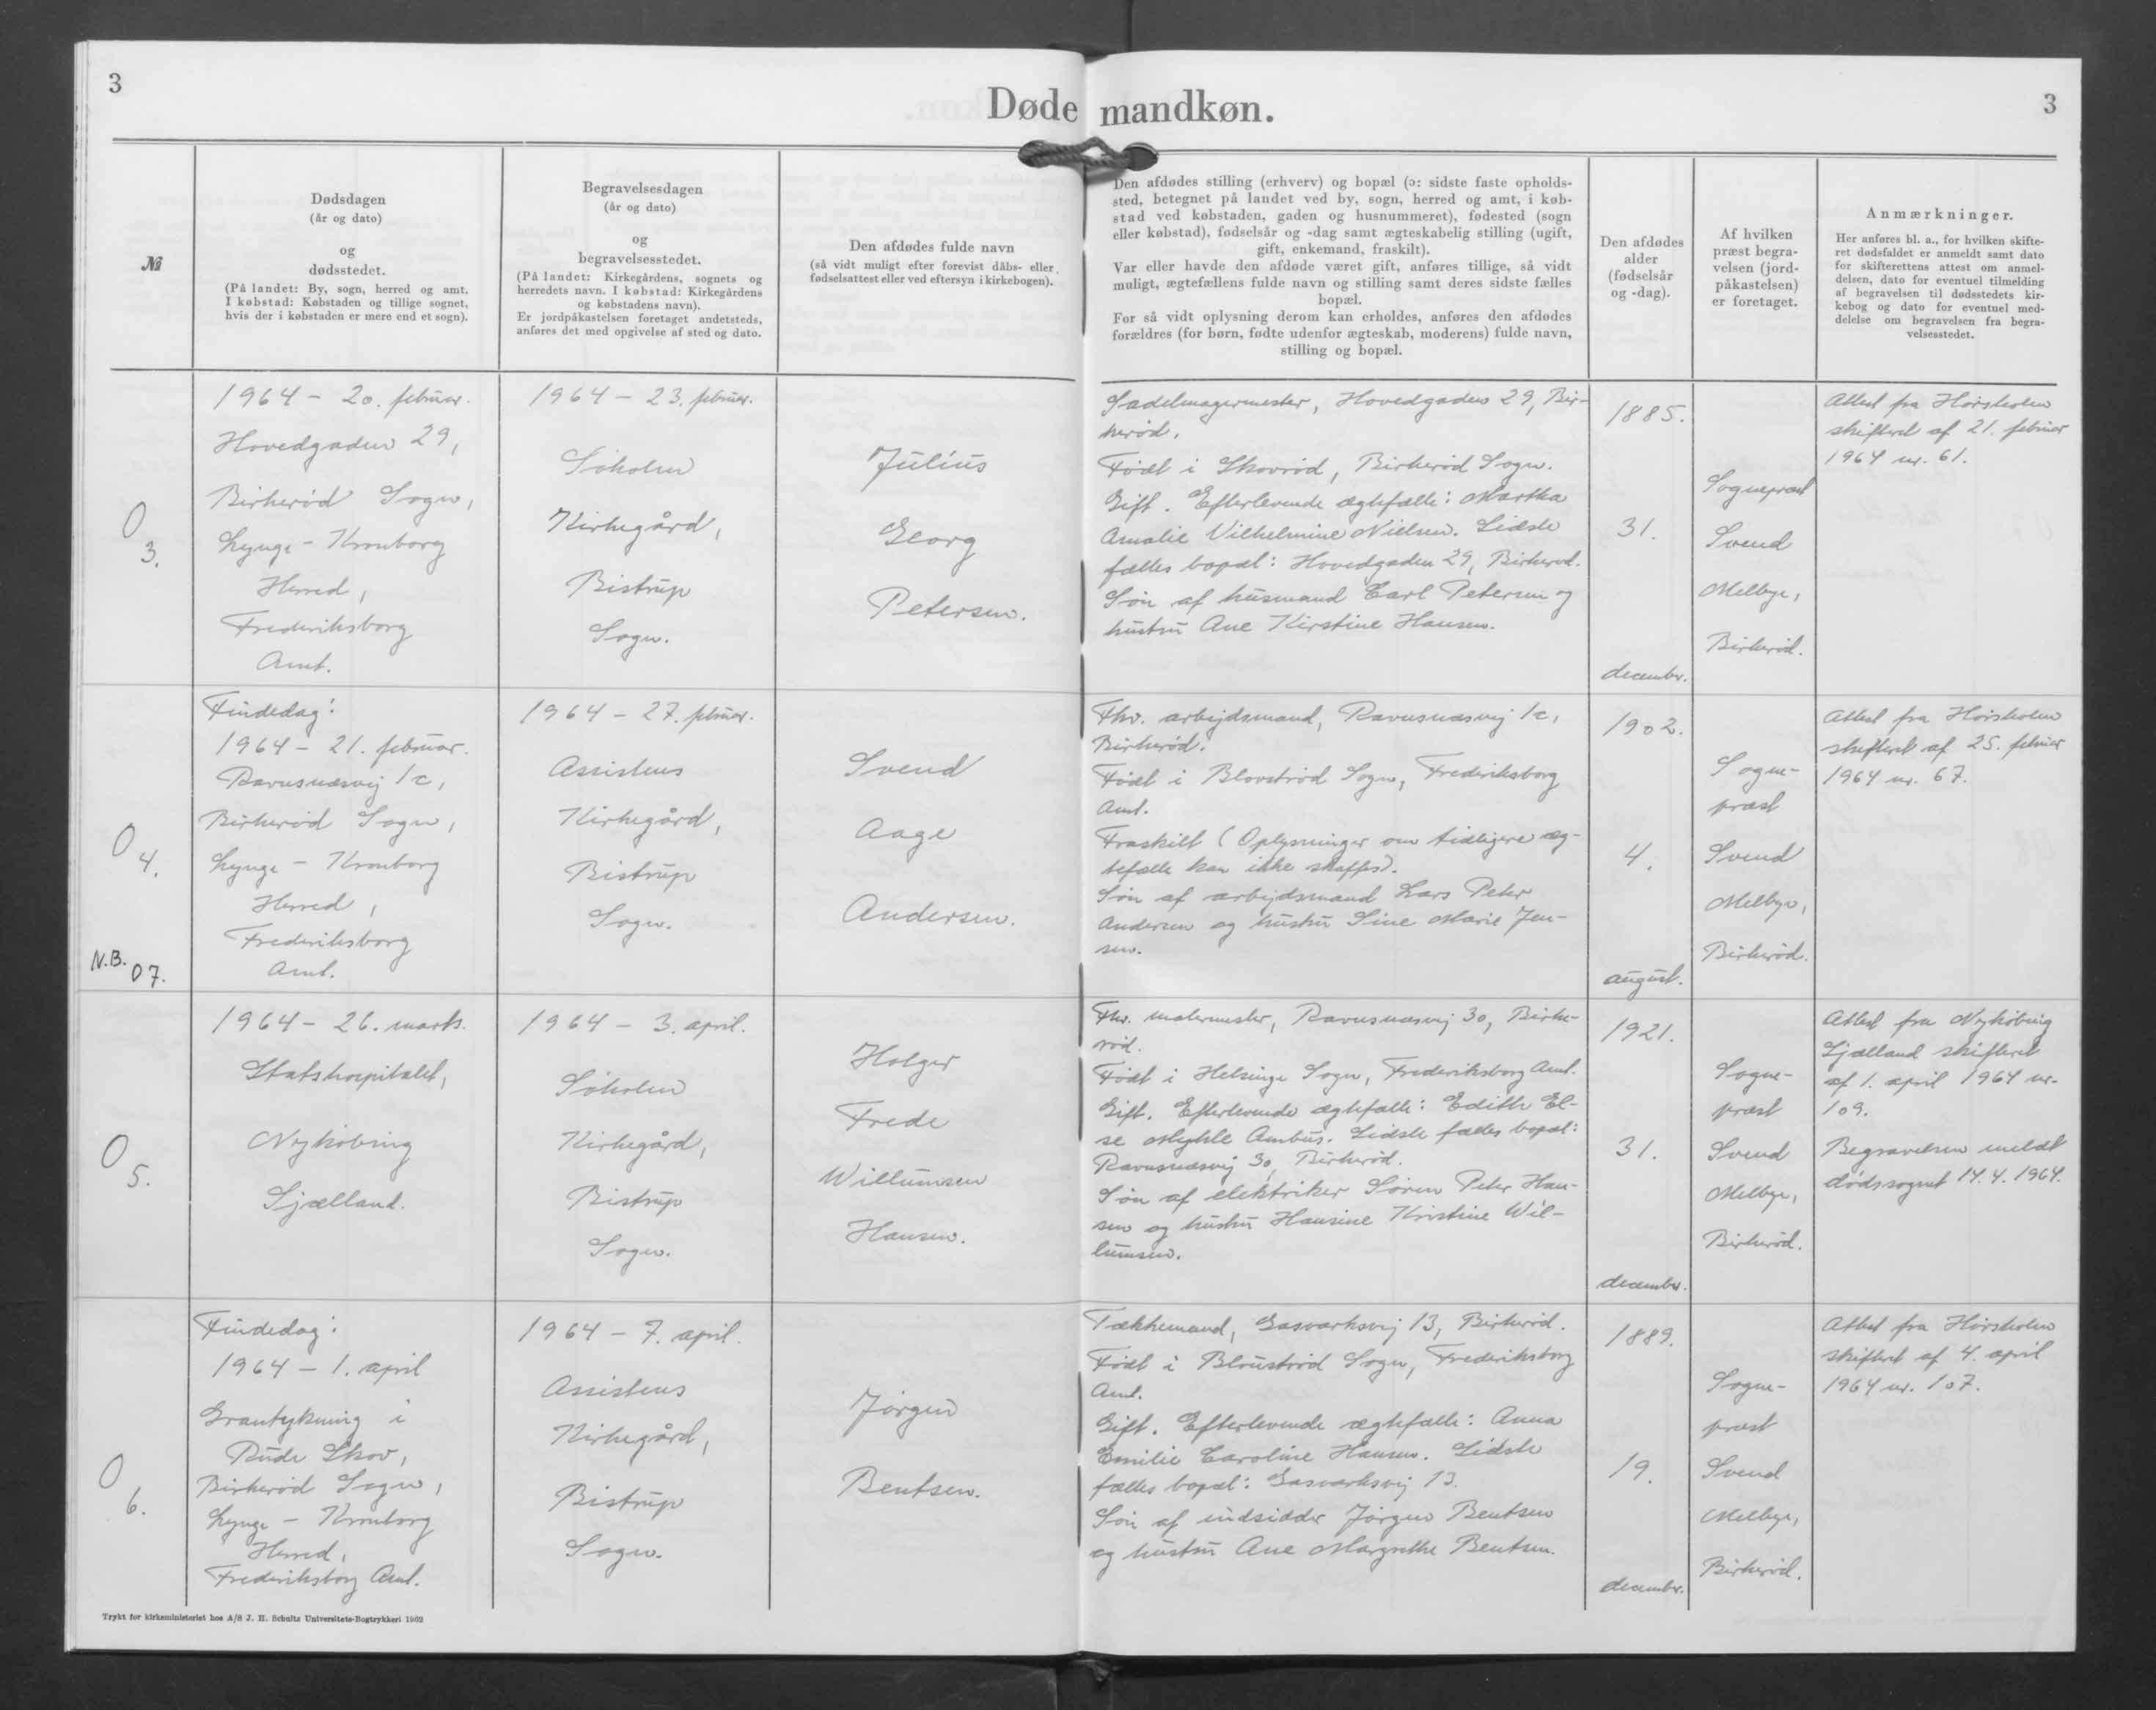 3
Døde mandkøn.
3
№
Dødsdagen
(år og dato)
og
dødsstedet.
(På landet: By, sogn, herred og amt.
I købstad: Købstaden og tillige sognet,
hvis der i købstaden er mere end et sogn).
Begravelsesdagen
(år og dato)
og
begravelsesstedet.
(På landet: Kirkegårdens, sognets og
herredets navn. I købstad: Kirkegårdens
og købstadens navn).
Er jordpåkastelsen foretaget andetsteds,
anføres det med opgivelse af sted og dato.
Den afdødes fulde navn
(så vidt muligt efter forevist dåbs- eller
fødselsattest eller ved eftersyn i kirkebogen).
Den afdødes stilling (erhverv) og bopæl (ɔ: sidste faste opholds-
sted, betegnet på landet ved by, sogn, herred og amt, i køb-
stad ved købstaden, gaden og husnummeret), fødested (sogn
eller købstad), fødselsår og -dag samt ægteskabelig stilling (ugift,
gift, enkemand, fraskilt).
Var eller havde den afdøde været gift, anføres tillige, så vidt
muligt, ægtefællens fulde navn og stilling samt deres sidste fælles
bopæl.
For så vidt oplysning derom kan erholdes, anføres den afdødes
forældres (for børn, fødte udenfor ægteskab, moderens) fulde navn,
stilling og bopæl.
Den afdødes
alder
(fødselsår
og -dag).
Af hvilken
præst begra-
velsen (jord-
påkastelsen)
er foretaget.
Anmærkninger.
Her anføres bl. a., for hvilken skifte-
ret dødsfaldet er anmeldt samt dato
for skifterettens attest om anmel-
delsen, dato for eventuel tilmelding
af begravelsen til dødsstedets kir-
kebog og dato for eventuel med-
delelse om begravelsen fra begra-
velsesstedet.
0
3.
1964 - 20. februar.
Hovedgaden 29,
Birkerød Sogn,
Lynge - Kronborg
Herred,
Frederiksborg
Amt.
1964 - 23. februar.
Søholm
Kirkegård,
Bistrup
Sogn.
Julius
Georg
Petersen.
Sadelmagermester, Hovedgaden 29, Bir-
kerød.
Født i Skovrød, Birkerød Sogn.
Gift. Efterlevende ægtefælle: Martha
Amalie Vilhelmine Nielsen. Sidste
fælles bopæl: Hovedgaden 29, Birkerød.
Søn af husmand Carl Petersen og
hustru Ane Kirstine Hansen.
1885.
31.
december.
Sognepræst
Svend
Melbye,
Birkerød.
Attest fra Hørsholm
skifteret af 21. februar
1964 nr. 61.
0
4.
N.B. 07.
Findedag:
1964 - 21. februar.
Ravnsnæsvej 1c,
Birkerød Sogn,
Lynge - Kronborg
Herred,
Frederiksborg
Amt.
1964 - 27. februar.
Assistens
Kirkegård,
Bistrup
Sogn.
Svend
Aage
Andersen.
Fhv. arbejdsmand, Ravnsnæsvej 1c,
Birkerød.
Født i Blovstrød Sogn, Frederiksborg
Amt.
Fraskilt (Oplysninger om tidligere æg-
tefælle kan ikke skaffes).
Søn af arbejdsmand Lars Peter
Andersen og hustru Sine Marie Jen-
sen.
1902.
4.
august.
Sogne-
præst
Svend
Melbye,
Birkerød.
Attest fra Hørsholm
skifteret af 25. februar
1964 nr. 67.
0
5.
1964 - 26. marts.
Statshospitalet,
Nykøbing
Sjælland.
1964 - 3. april.
Søholm
Kirkegård,
Bistrup
Sogn.
Holger
Frede
Willumsen
Hansen.
Fhv. malermester, Ravnsnæsvej 30, Birke-
rød.
Født i Helsinge Sogn, Frederiksborg Amt.
Gift. Efterlevende ægtefælle: Edith El-
se Ambus. Sidste fælles bopæl:
Ravnsnæsvej 30, Birkerød.
Søn af elektriker Søren Peter Han-
sen og hustru Hansine Kristine Wil-
lumsen.
1921.
31.
december.
Sogne-
præst
Svend
Melbye,
Birkerød.
Attest fra Nykøbing
Sjælland skifteret
af 1. april 1964 nr.
109.
Begravelsen meldt
dødssognet 14.4.1964.
0
6.
Findedag:
1964 - 1. april
Grantykning i
Rude Skov,
Birkerød Sogn,
Lynge - Kronborg
Herred,
Frederiksborg Amt.
1964 - 7. april.
Assistens
Kirkegård,
Bistrup
Sogn.
Jørgen
Bentsen.
Tækkemand, Gasværksvej 13, Birkerød.
Født i Bloustrød Sogn, Frederiksborg
Amt.
Gift. Efterlevende ægtefælle: Anna
Emilie Caroline Hansen. Sidste
fælles bopæl: Gasværksvej 13.
Søn af indsidder Jørgen Bentsen
og hustru Ane Margrethe Bentsen.
1889.
19.
december.
Sogne-
præst
Svend
Melbye,
Birkerød.
Attest fra Hørsholm
skifteret af 4. april
1964 nr. 107.
Trykt for kirkeministeriet hos A/S J. H. Schultz Universitets-Bogtrykkeri 1962